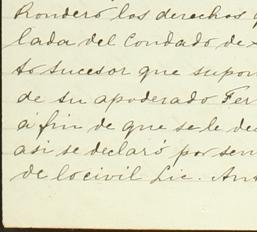 Ronderó los derechos
lada del Condado de
to sucesor que supon
de su apoderado Fer
á fin de que se le dec
asi se declaró por sen
de lo civil Lic. Ant